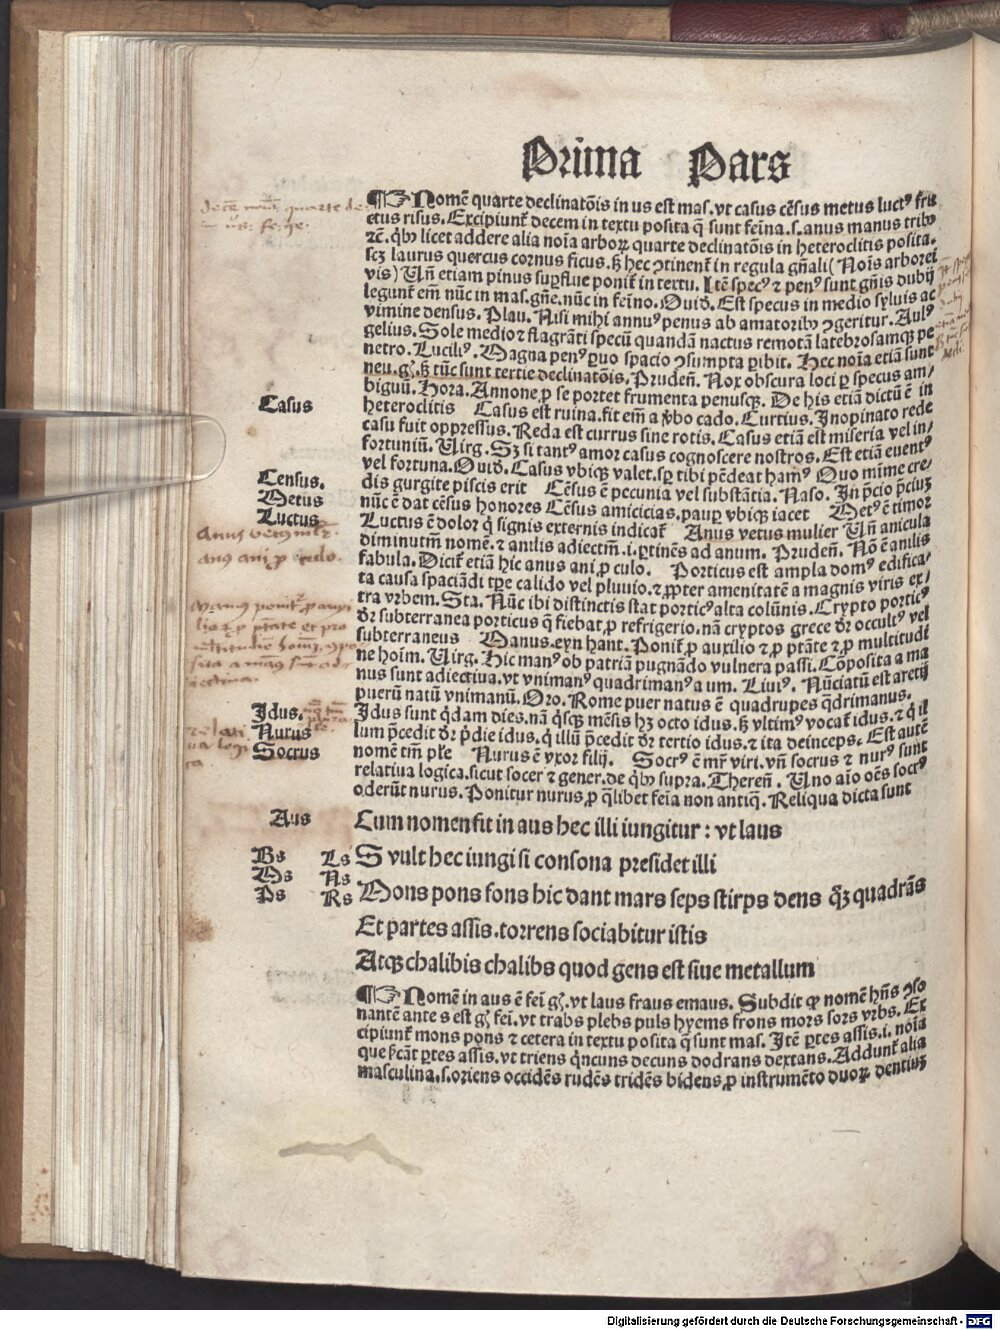 Prima Pars
¶ Nomē quarte declinatōis in us est mas. vt casus cēsus metus luctꝰ fru
ctus risus. Excipiunt̄ decem in textu posita q̄ sunt fei̅na .s. anus manus tribꝰ
⁊c̄. q̇bꝰ licet addere alia noi̅a arboꝝ quarte declinatōis in heteroclitis posita.
scꝫ laurus quercus cornus ficus. ꝫ hec ↄtinent̄ in regula gn̄ali (Noi̅s arborei
vis) Un̄ etiam pinus suꝑflue ponit̄ in textu. Itē specꝰ ⁊ penꝰ sunt gn̄is dubij
legunt̄ em̄ nūc in mas. gn̄e. nūc in fei̅no. Ouid̄. Est specus in medio syluis ac
vimine densus. Plau. Nisi mihi annuꝰ penus ab amatoribꝰ ↄgeritur. Aulꝰ
gelius. Sole medio ⁊ flagrāti specū quandā nactus remotā latebrosamqꝫ pe
netro. Luciliꝰ. Magna penꝰ ꝑuo spacio ↄsumpta ꝑibit. Hec noi̅a etiā sunt
neu. gͥ. ꝫ tūc sunt tertie declinatōis. Pruden̄. Nox obscura loci ꝑ specus am/
biguū. Hora. Annone ꝓ se portet frumenta penusqꝫ. De his etiā dictū ē in
heteroclitis Casus est ruina. fit em̄ a v̄bo cado. Curtius. Inopinato rede
casu fuit oppressus. Reda est currus sine rotis. Casus etiā est miseria vel in/
fortuniū. Uirg. Sꝫ si tantꝰ amor casus cognoscere nostros. Est etiā euentꝰ
vel fortuna. Ouid̄. Casus vbiqꝫ valet. sꝑ tibi pēdeat hamꝰ Quo mi̅me cre/
dis gurgite piscis erit Cēsus ē pecunia vel substātia. Naso. In p̄cio p̄ciuꝫ
nūc ē dat cēsus honores Cēsus amicicias. pauꝑ vbiqꝫ iacet Metꝰ ē timor
Luctus ē dolor q̇ signis externis indicat̄ Anus vetus mulier Un̄ anicula
diminutm̄ nomē. ⁊ anilis adiectm̄ .i. ꝑtinēs ad anum. Pruden̄. Nō ē anilis
fabula. Dicit̄ etiā hic anus ani ꝓ culo. Porticus est ampla domꝰ edifica/
ta causa spaciādi tꝑe calido vel pluuio. ⁊ ꝓpter amenitatē a magnis viris ex/
tra vrbem. Sta. Nūc ibi distinctis stat porticꝰ alta colūnis. Crypto porticꝰ
dr̄ subterranea porticus q̄ fiebat ꝓ refrigerio. nā cryptos grece dr̄ occultꝰ vel
subterraneus Manus. eyn hant. Ponit̄ ꝓ auxilio ⁊ ꝓ ptāte ⁊ ꝓ multitudi
ne hoi̅m. Uirg. Hic manꝰ ob patriā pugnādo vulnera passi. Cōposita a ma
nus sunt adiectiua. vt vnimanꝰ quadrimanꝰ a um. Liuiꝰ. Nūciatū est aretij
puerū natū vnimanū. Oro. Rome puer natus ē quadrupes q̄drimanus.
Idus sunt q̇dam dies. nā q̇sqꝫ mēsis hꝫ octo idus. ꝫ vltimꝰ vocat̄ idus. ⁊ q̇ il
lum p̄cedit dr̄ p̄die idus. q̇ illū p̄cedit dr̄ tertio idus. ⁊ ita deinceps. Est autē
nomē tm̄ pl̄e Nurus ē vxor filij. Socrꝰ ē mr̄ viri. vn̄ socrus ⁊ nurꝰ sunt
relatiua logica. sicut socer ⁊ gener. de q̇bꝰ supra. Theren̄. Uno aīo oēs socrꝰ
oderūt nurus. Ponitur nurus ꝓ q̄libet fei̅a non antiq̄. Reliqua dicta sunt
Casus
Census.
Metus
Luctus
anus vetus mlr̄.
anus ani ꝓ culo.
Idus.
Nurus
Socrus
Aus
Cum nomen fit in aus hec illi iungitur : vt laus
Bs Ls
S vult hec iungi si consona presidet illi
Ms Ns
Ps Rs
Mons pons fons hic dant mars seps stirps dens qꝫ quadrās
Et partes assis. torrens sociabitur istis
Atqꝫ chalibis chalibs quod gens est siue metallum
¶ Nomē in aus ē fei̅ gͥ. vt laus fraus emaus. Subdit ꝙ nomē hn̄s ↄso
nantē ante s est gͥ fei̅. vt trabs plebs puls hyems frons mors sors vrbs. Ex
cipiunt̄ mons pons ⁊ cetera in textu posita q̄ sunt mas. Itē ꝑtes assis .i. noi̅a
que significāt ꝑtes assis. vt triens q̇ncuns decuns dodrans dextans. Addunt̄ alia
masculina .s. oriens occidēs rudēs tridēs bidens ꝓ instrumēto duoꝝ dentiuꝫ
Digitalisierung gefördert durch die Deutsche Forschungsgemeinschaft - DFG